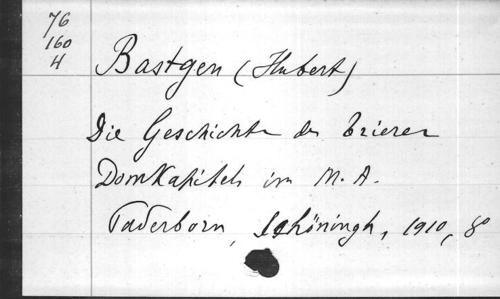 76
160
4
Bastgen (Hubert)
Die Geschichte des Trierer
Domkapitels im M. A.
Paderborn, Schöningh, 1910, 8°